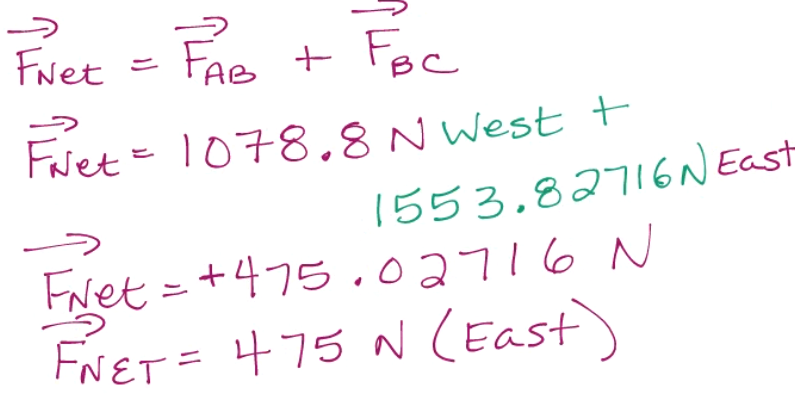 F⃗Net = F⃗AB + F⃗BC
F⃗Net = 1078.8 N West +
1553.82716 N East
F⃗Net = +475.02716 N
F⃗NET = 475 N (East)